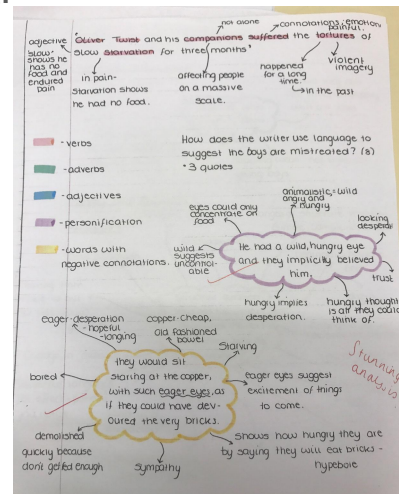 not alone
connotations, emotion
painful.
adjective
'slow'
shows he
has no
food and
endured
pain
'Oliver Twist and his companions suffered the tortures of
slow starvation for three months'
in pain-
starvation shows
he had no food.
affecting people
on a massive
scale.
happened
for a long
time.
in the past
violent
imagery
-verbs
-adverbs
-adjectives
-personification
-words with
negative connotations.
How does the writer use language to
suggest the boys are mistreated? (8)
*3 quotes
eyes could only
concentrate on
food
animalistic, = wild
angry and
hungry
looking
desperate
wild
suggests
uncontrol-
able
He had a wild, hungry eye
and they implicitly believed
him.
trust
hungry implies
desperation.
hungry thought
is all they could
think of.
eager-desperation
-hopeful
-longing
copper-cheap,
old fashioned
bowel
Starving
bored
they would sit
staring at the copper,
with such eager eyes, as
if they could have dev-
oured the very bricks.
eager eyes suggest
excitement of things
to come.
demolished
quickly because
don't get fed enough
sympathy
shows how hungry they are
by saying they will eat bricks -
hypebole
Stunning
analysis